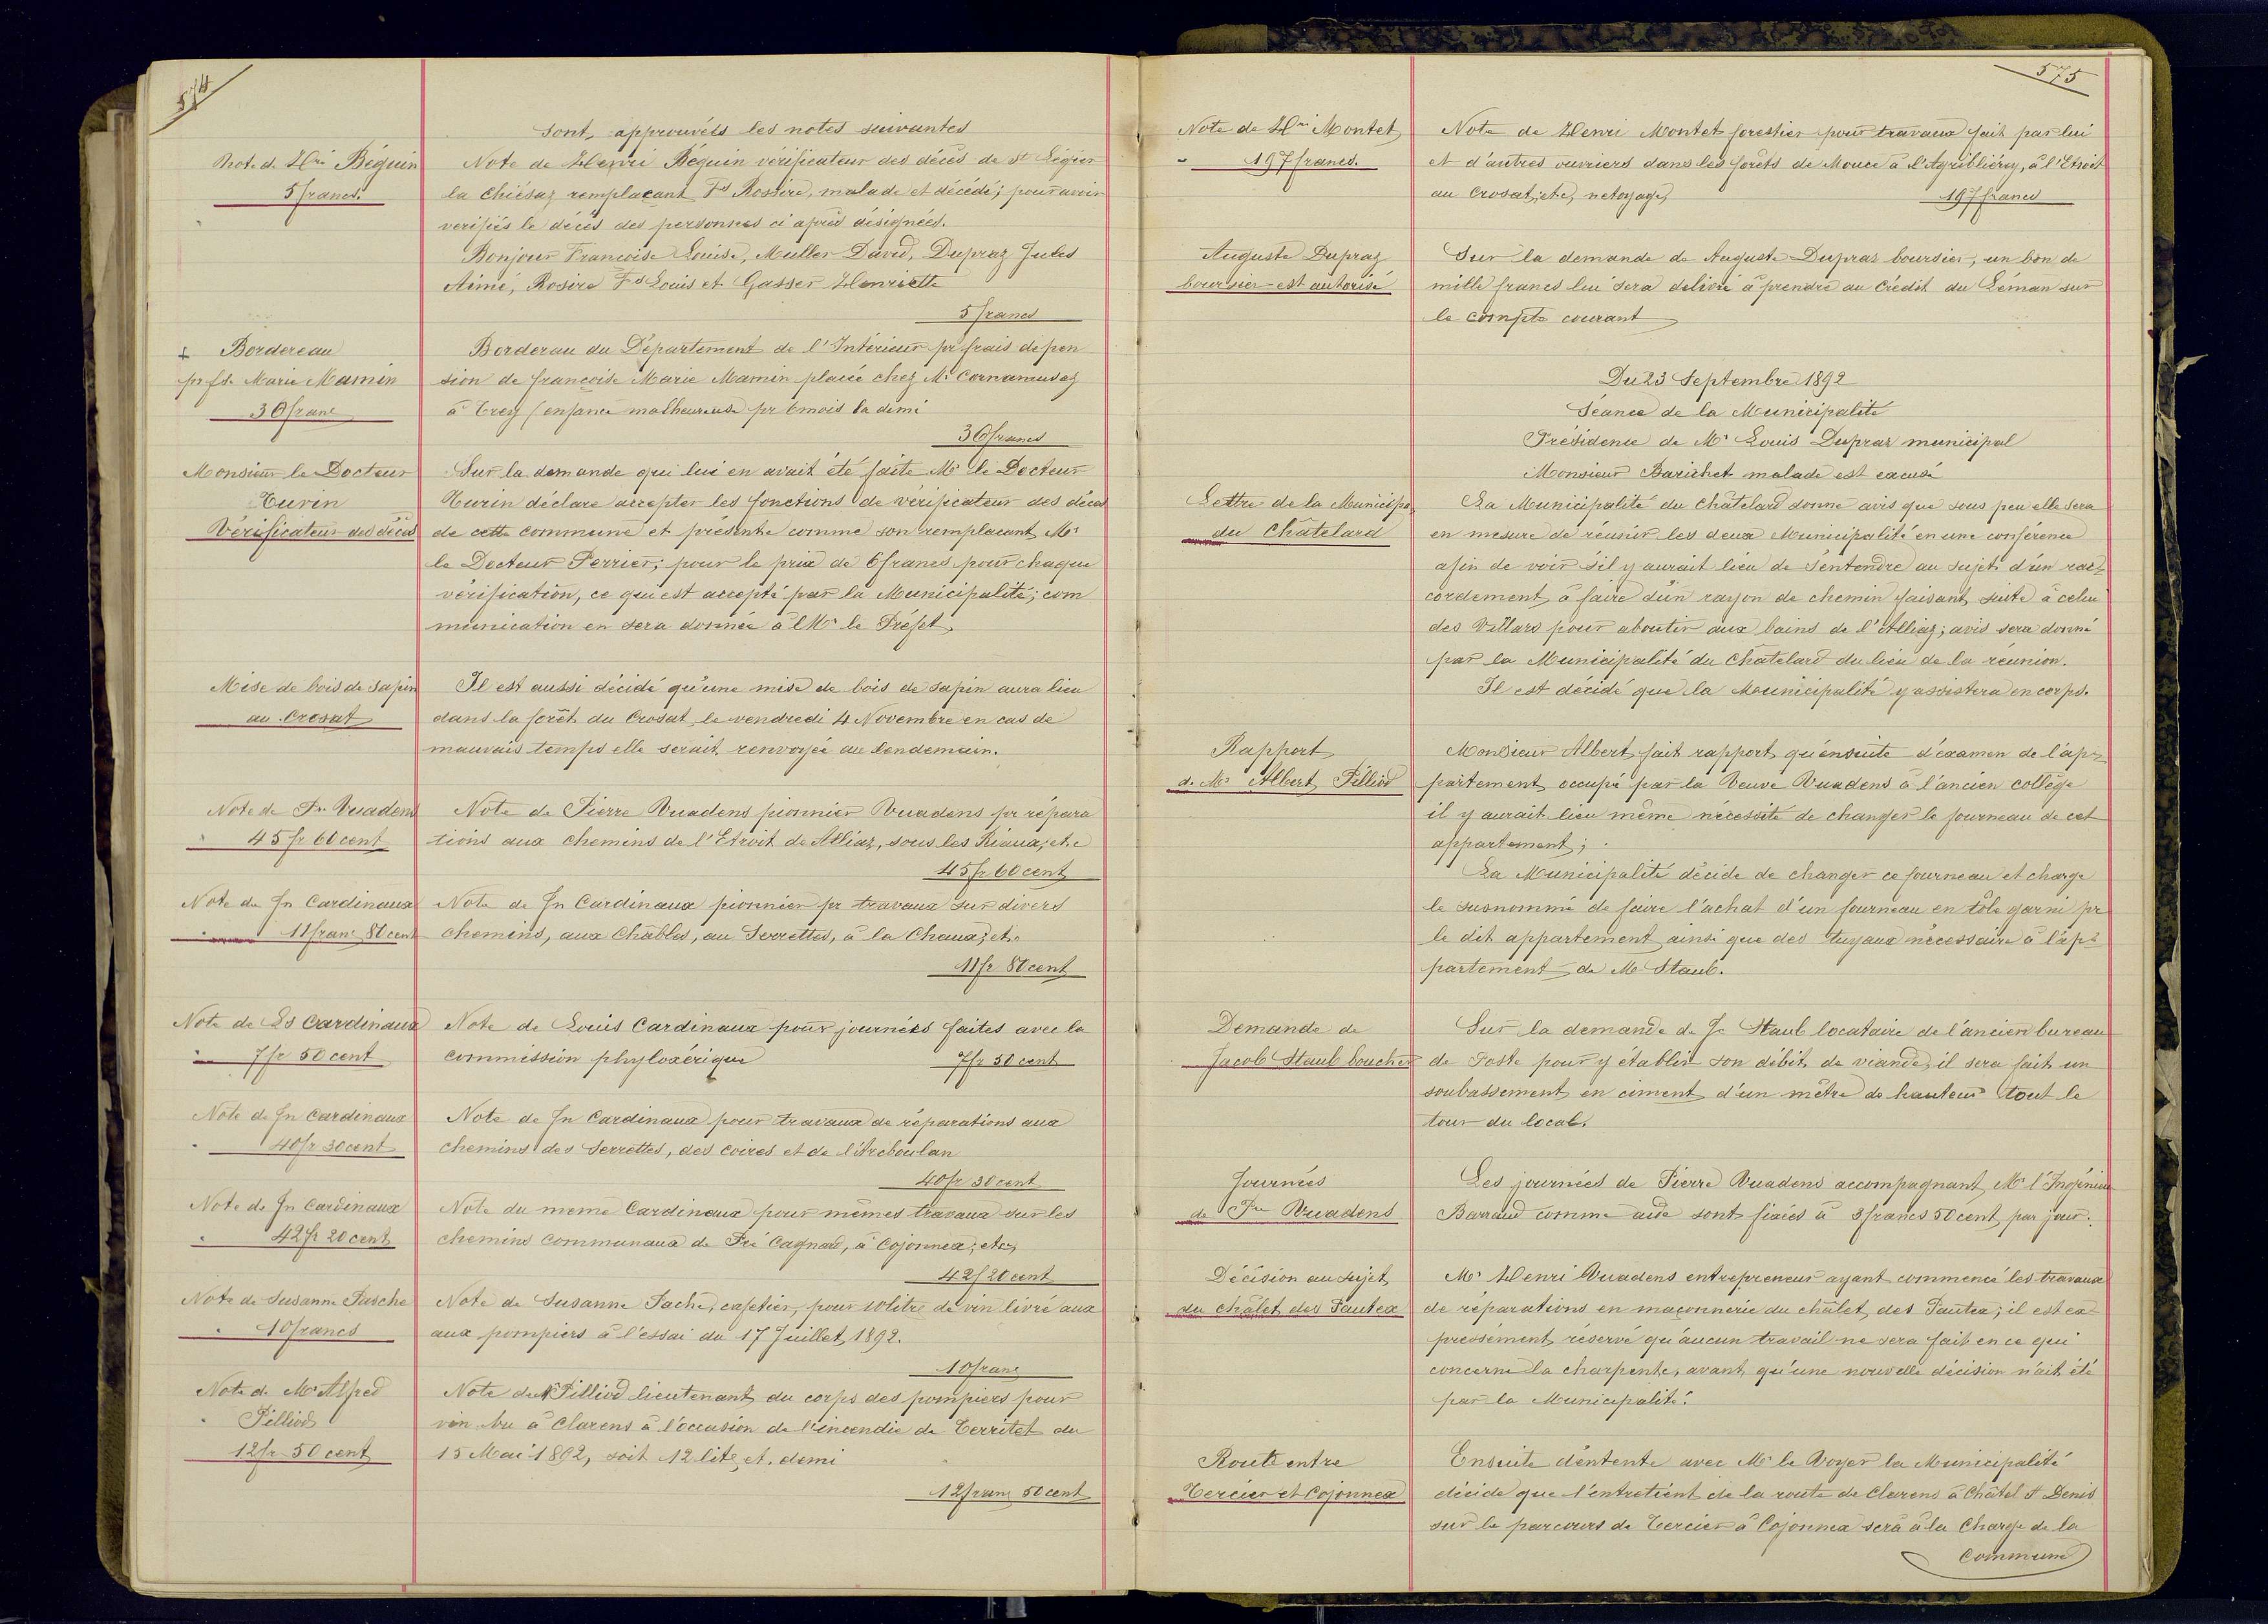 574
Sont, approuvéls les notes suivantes
Note d. Hri Béguin
5 francs.
Note de Henri Béguin vérificateur des décès de St Légier
la Chiésaz remplacant Fs Rossire, malade et décédé; pour avoir
verifiés le décès des personnes ci après désignées.
Bonjour Francoise Louise, Muller David, Dupraz Jules
Aimé, Rosire Fs Louis et Gasser Henriette
5 francs
+ Bordereau
pr fse Marie Mamin
30 franc
Borderau du Département de l'Intérieur pr frais de pen
sion de francoise Marie Mamin placée chez Mr Cornamusaz
à Trey (enfance malheureuse pr 6 mois la demi
30 francs
Monsieur le Docteur
Turin
Vérificateur des décès
Sur la demande qui lui en avait été faite Mr le Docteur
Turin déclare accepter les fonctions de vérificateur des décès
de cette commune et présente comme son remplacant Mr
le Docteur Perrier; pour le prix de 6 francs pour chaque
vérification, ce qui est accepté par la Municipalité; com
munication en sera donnée à Mr le Préfet.
Mise de bois de sapin
au Crosat
Il est aussi décidé qu'une mise de bois de sapin aura lieu
dans la forêt du Crosat, le vendredi 4 Novembre en cas de
mauvais temps elle serait renvoyée au lendemain.
Note de Pre Vuadens
45 fr 60 cent
Note de Pierre Vuadens pionnier Vuadens pr répara
tions aux chemins de l'Etroit de Alliaz, sous les Riaux, etc
45 fr 60 cent
Note de Jn Cardinaux
11 franc 80 cent
Note de Jn Cardinaux pionnier pr travaux sur divers
chemins, aux Châbles, au Serrettes, à la Chaux, etc
11 fr 80 cent
Note de Ls Cardinaux
7 fr 50 cent
Note de Louis Cardinaux pour journées faites avec la
commission phyloxérique 7 fr 50 cent
Note de Jn Cardinaux
40 fr 30 cent
Note de Jn Cardinaux pour travaux de réparations aux
chemins des Serrettes, des coires et de l'Arcboulan
40 fr 30 cent
Note de Jn Cardinaux
42 fr 20 cent
Note du meme Cardinaux pour mêmes travaux sur les
chemins communaux de Pré Cagnard, à Cojonnex, etc,
42 f 20 cent
Note de Susanne Pasche
10 francs
Note de Susanne Pache, cafetier, pour 10 litre de vin livré aux
aux pompiers à l'essai du 17 Juillet 1892.
10 franc
Note d. Mr Alfred
Pilliod
12 fr 50 cent
Note de Mr Pilliod lieutenant du corps des pompiers pour
vin bu à Clarens à l'occasion de l'incendie de Territet du
15 Mai 1892, soit 12 lite, et, demi
12 franc 50 cent
575
Note de Hri Montet
197 francs.
Note de Henri Montet forestier pour travaux fait par lui
et d'autres ouvriers dans les forêts de Mouce à l'Agribliéray, à l'Etroit
au Crosat, etc, netoyage, 197 francs
Auguste Dupraz
boursier est autorisé
Sur la demande de Auguste Dupraz boursier, un bon de
mille francs lui sera délivré à prendre au Crédit du Léman sur
le compte courant
Du 23 Septembre 1892
Séance de la Municipalité
Présidence de Mr Louis Dupraz municipal
Monsieur Barichet malade est excusé
Lettre de la Municipa
du Châtelard
La Municipalité du Châtelard donne avis que sous peu elle sera
en mesure de réunir les deux Municipalité en une conférence
afin de voir s'il y aurait lieu de s'entendre au sujet d'un rac=
cordement à faire d'un rayon de chemin faisant suite à celui
des Villars pour aboutir aux bains de l'Alliaz; avis sera donné
par la Municipalité du Châtelard du lieu de la réunion.
Il est décidé que la Municipalité y assistera en corps.
Rapport
de Mr Albert Pilliod
Monsieur Albert fait rapport qu'ensuite d'examen de l'ap=
partement occupé par la Veuve Vuadens à l'ancien collège
il y aurait lieu même nécessité de changer le fourneau de cet
appartement;
La Municipalité décide de changer ce fourneau et charge
le susnommé de faire l'achat d'un fourneau en tôle garni pr
le dit appartement ainsi que des tuyaux nécessaire à l'ap=
partement de Mr Staub.
Demande de
Jacob Staub boucher
Sur la demande de Jc Staub locataire de l'ancien bureau
de Poste pour y établir son débit de viande, il sera fait un
soubassement en ciment d'un mètre de hauteur tout le
tour du local.
Journées
de Pre Vuadens
Les journées de Pierre Vuadens accompagnant Mr l'Ingénieur
Barraud comme aide sont fixées à 3 francs 50 cent par jour.
Décision au sujet
du châlet des Pautex
Mr Henri Vuadens entrepreneur ayant commencé les travaux
de réparations en maçonnerie du châlet des Pautex; il est ex=
pressément réservé qu'aucun travail ne sera fait en ce qui
concerne la charpente, avant qu'une nouvelle décision n'ait été
par la Municipalité.
Route entre
Tercier et Cojonnex
Ensuite d'entente avec Mr le Voyer la Municipalité
décide que l'entretient de la route de Clarens à Châtel St Denis
sur le parcours de Tercier à Cojonnex sera à la Charge de la
Commune